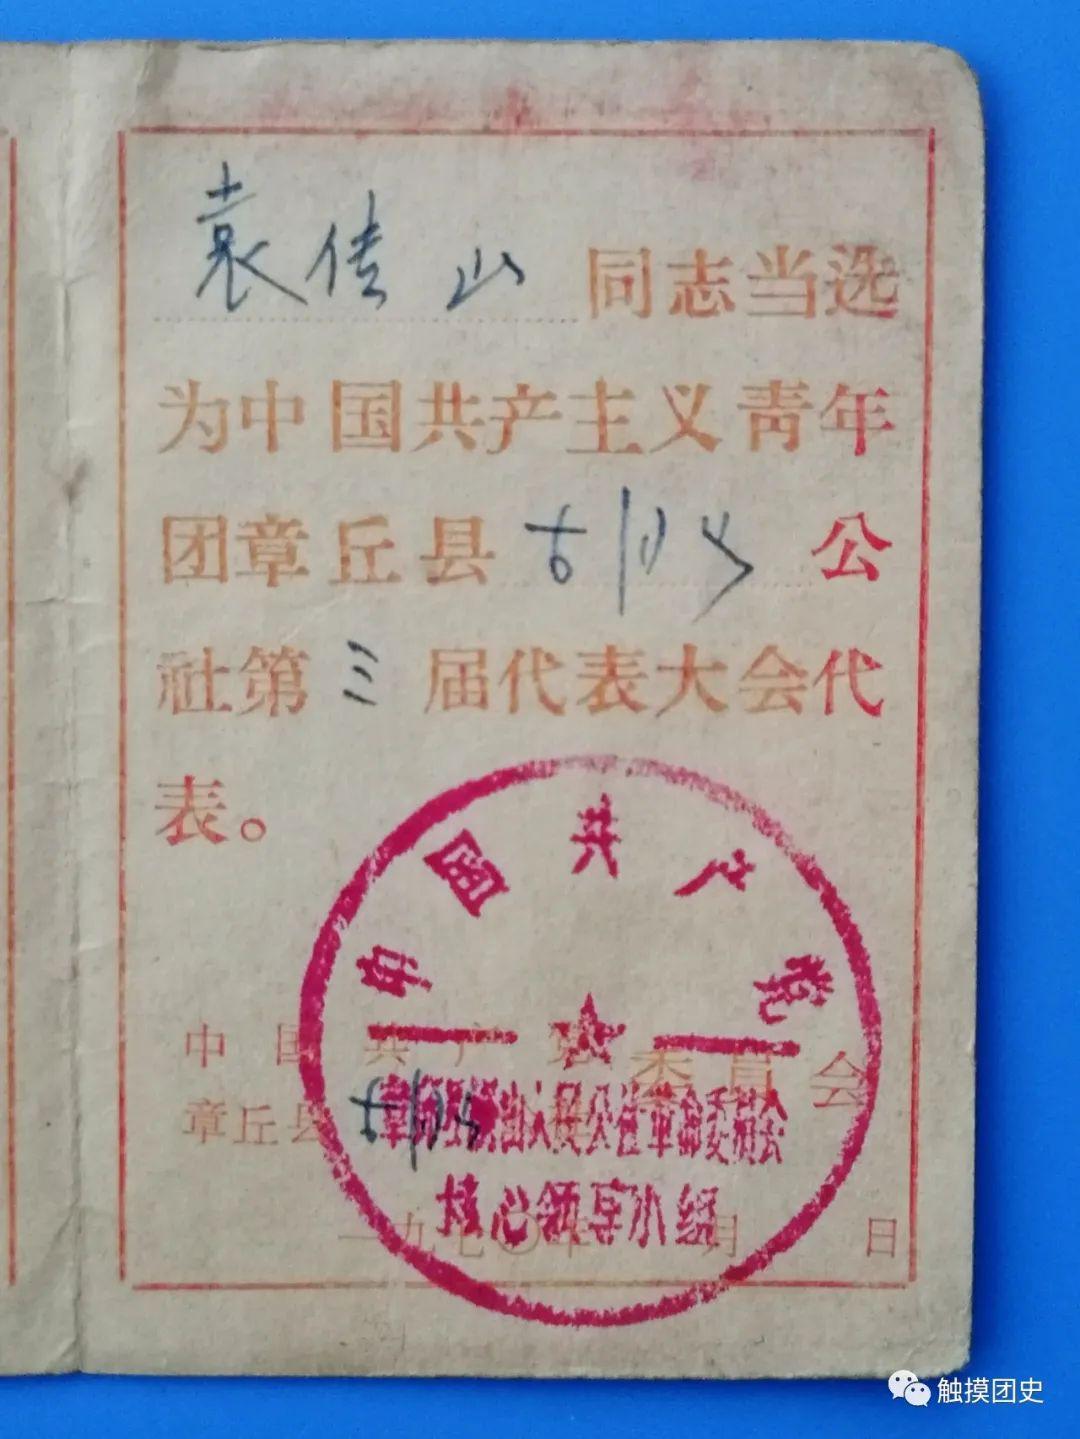 袁传山同志当选
为中国共产主义青年
团章丘县 公
社第三届代表大会代
表。
中国共产党 委员会
章丘县
一九七〇年 月 日
中国共产党
人民公社革命委员会
核心领导小组
触摸团史